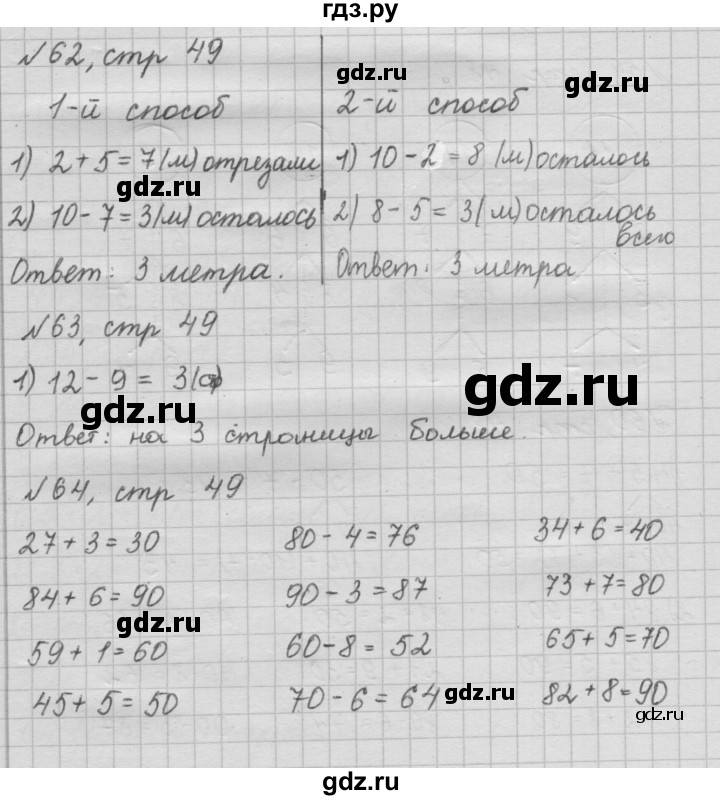 гдз.ру
№62, стр 49
1-й способ
1) 2 + 5 = 7 (м) отрезали
2) 10 - 7 = 3 (м) осталось
Ответ: 3 метра.
2-й способ
1) 10 - 2 = 8 (м) осталось
2) 8 - 5 = 3 (м) осталось
всего
Ответ: 3 метра
№63, стр 49
1) 12 - 9 = 3 (с)
Ответ: на 3 страницы больше.
№64, стр 49
27 + 3 = 30 80 - 4 = 76 34 + 6 = 40
84 + 6 = 90 90 - 3 = 87 73 + 7 = 80
59 + 1 = 60 60 - 8 = 52 65 + 5 = 70
45 + 5 = 50 70 - 6 = 64 82 + 8 = 90
gdz.ru
gdz.ru
gdz.ru
gdz.ru
gdz.ru
gdz.ru
gdz.ru
gdz.ru
gdz.ru